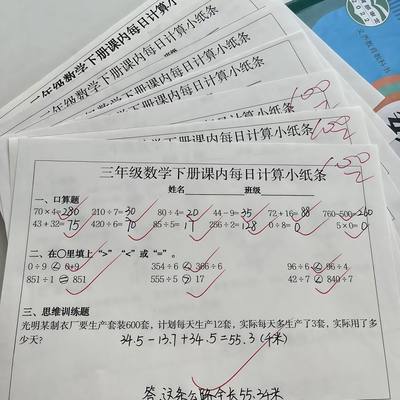 二年级数学下册课内每日计算小纸条
二年级数学下册课内每日计算小纸条
三年级数学下册课内每日计算小纸条
三年级数学下册课内每日计算小纸条
三年级数学下册课内每日计算小纸条
三年级数学下册课内每日计算小纸条
100
100
100
姓名 班级
一、口算题
70×4=280 210÷7=30 80÷4=20 44-9=35 72+16=88 760-500=260
43+32=75 420÷6=70 85÷5=17 256÷2=128 0÷8=0 5×0=0
二、在○里填上“>”“<”或“=”。
0÷9 0+9 354÷6 366÷6 96÷6 96÷4
851÷1=851 555÷5 17 42÷7 840÷7
三、思维训练题
光明某制衣厂要生产套装600套，计划每天生产12套，实际每天多生产了3套，实际用了多
少天？ 34.5-13.7+34.5=55.3(千米)
答:这条公路全长55.3千米
义务教育教科书